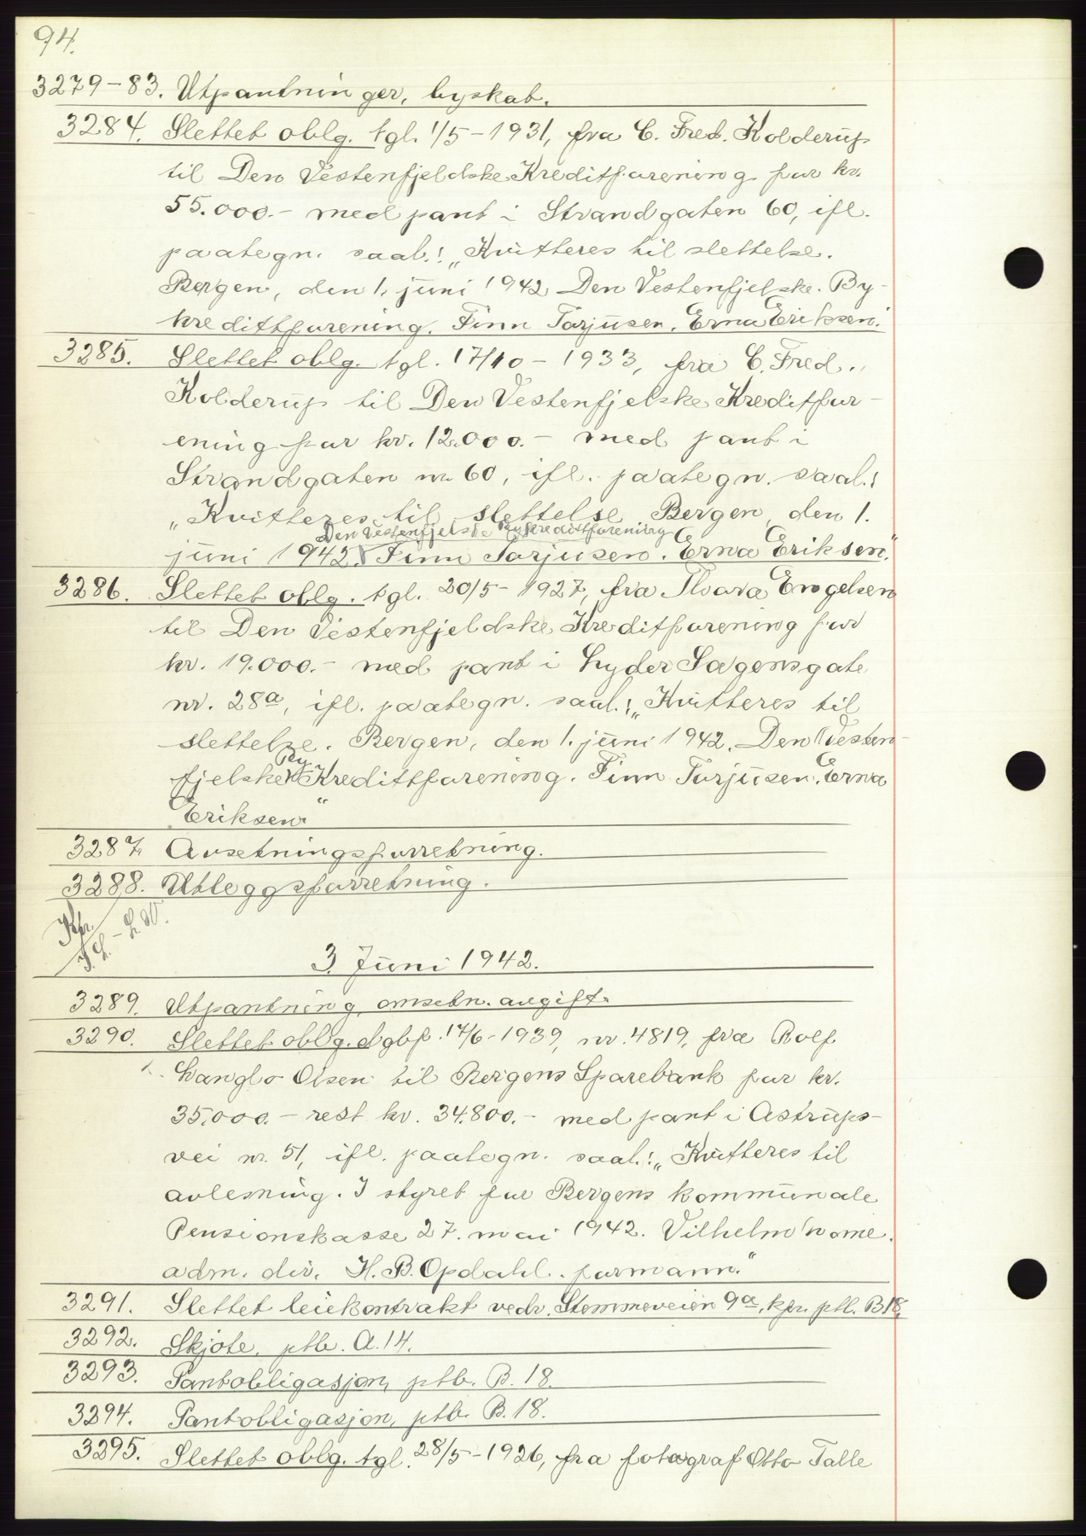 94.
3279-83. Utpantninger, byskat.
3284. Slettet oblg. tgl. 1/5-1931, fra C. Fred. Kolderup
til Den Vestenfjeldske Kreditforening for kr.
55.000.- med pant i Strandgaten 60, ifl.
paategn. saal.: „Kvitteres til slettelse.
Bergen, den 1. juni 1942 Den Vestenfjelske By-
kredittforening. Finn Torjusen. Erna Eriksen."
3285. Slettet oblg. tgl. 17/10-1933, fra C. Fred.
Kolderup til Den Vestenfjelske Kreditfor-
ening for kr. 12.000.- med pant i
Strandgaten nr. 60, ifl. paategn. saal.:
„Kvitteres til slettelse Bergen, den 1.
Den Vestenfjelske Bykredittforening
juni 1942. Finn Torjusen. Erna Eriksen."
3286. Slettet oblg. tgl. 20/5-1927, fra Thora Engelsen
til Den Vestenfjeldske Kreditforening for
kr. 19.000.- med pant i Lyder Sagensgate
nr. 28a, ifl. paategn. saal.: „Kvitteres til
slettelse. Bergen, den 1. juni 1942. Den Vesten-
By
fjelske Kredittforening. Finn Torjusen. Erna
Eriksen."
3287. Avsetningsforretning.
3288. Utleggsforretning.
3. Juni 1942.
3289. Utpantning, omsetn. avgift.
3290. Slettet oblg. dgbf. 17/6-1939, nr. 4819, fra Rolf
Langlo Olsen til Bergens Sparebank for kr.
35.000.- rest kr. 34.800.- med pant i Astrups-
vei nr. 51, ifl. paategn. saal.: „Kvitteres til
avlesning. I styret for Bergens kommunale
Pensionskasse 27. mai 1942. Vilhelm
adm. dir. H. B. Opdahl. formann."
3291. Slettet leiekontrakt vedr. Stemmeveien 9a, kfr. ptb. B 18.
3292. Skjøte, ptb. A. 14.
3293. Pantobligasjon, ptb. B. 18.
3294. Pantobligasjon, ptb. B. 18.
3295. Slettet oblg. tgl. 28/5-1926, fra fotograf Otto Talle